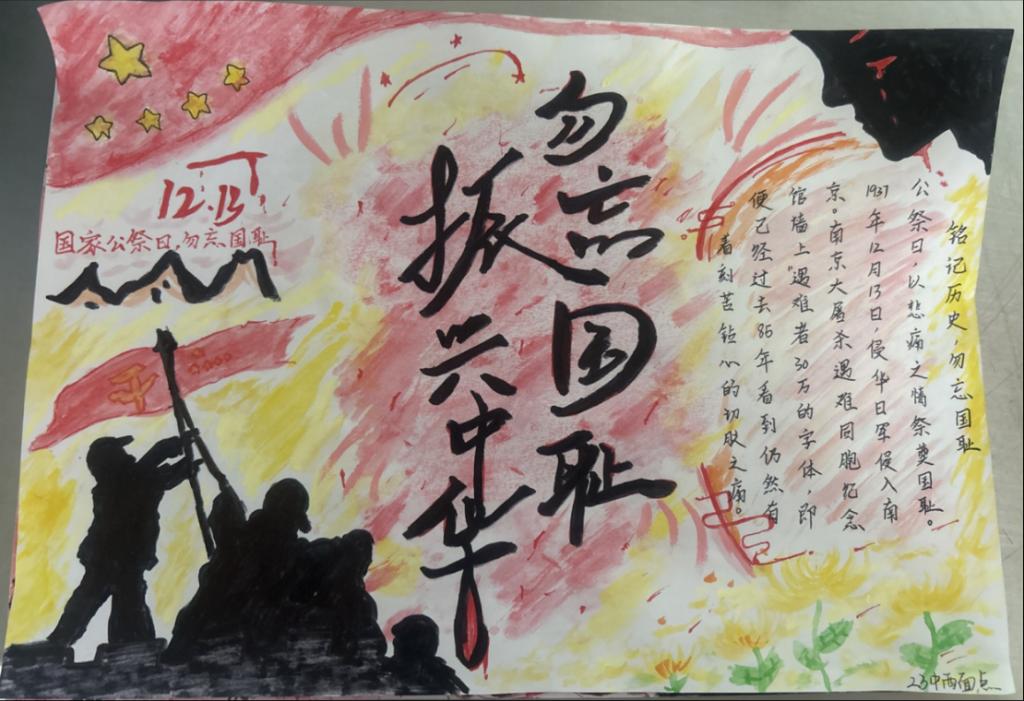 12.13
国家公祭日,勿忘国耻
勿忘国耻
振兴中华
铭记历史,勿忘国耻
公祭日,以悲痛之情祭奠国耻。
1937年12月13日,侵华日军侵入南
京。南京大屠杀遇难同胞纪念
馆墙上"遇难者30万的字体,即
便已经过去86年看到仍然有
着刻苦钻心的切肤之痛。
23中西面点